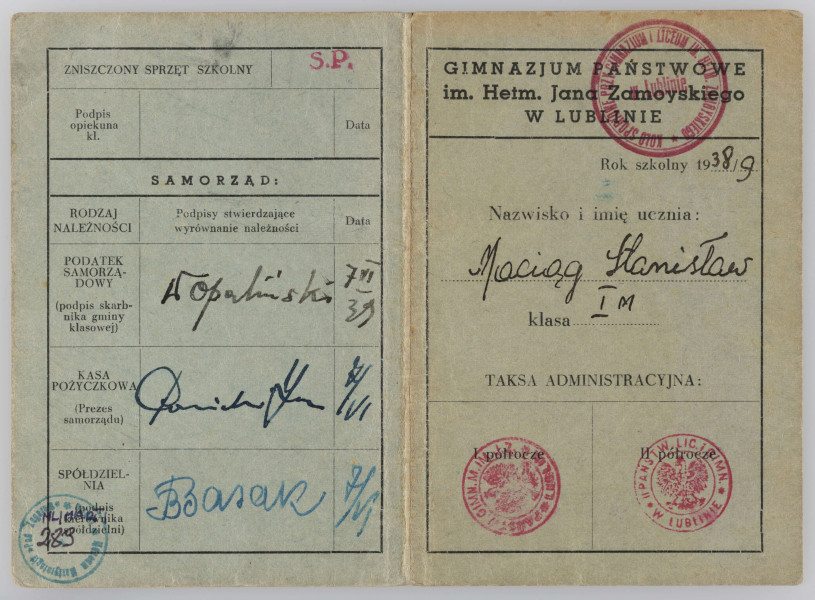 ZNISZCZONY SPRZĘT SZKOLNY
S.P.
Podpis
opiekuna
kl.
Data
SAMORZĄD:
RODZAJ
NALEŻNOŚCI
Podpisy stwierdzające
wyrównanie należności
Data
PODATEK
SAMORZĄ-
DOWY
(podpis skarb-
nika gminy
klasowej)
WOpaliński
7 VI
39
KASA
POŻYCZKOWA
(Prezes
samorządu)
7/VI
SPÓŁDZIEL-
NIA
(podpis
kierownika
spółdzielni)
BBasak
7/VI
289
GIMNAZJUM PAŃSTWOWE
im. Hetm. Jana Zamoyskiego
W LUBLINIE
KOŁO SPORTOWE PRZY GIMNAZIUM I LICEUM IM. HETM. ZAMOYSKIEGO
w Lublinie
Rok szkolny 1938/9
Nazwisko i imię ucznia:
Maciąg Stanisław
klasa I M
TAKSA ADMINISTRACYJNA:
I półrocze
II półrocze
II PAŃSTW. LIC. I GIMN.
W LUBLINIE